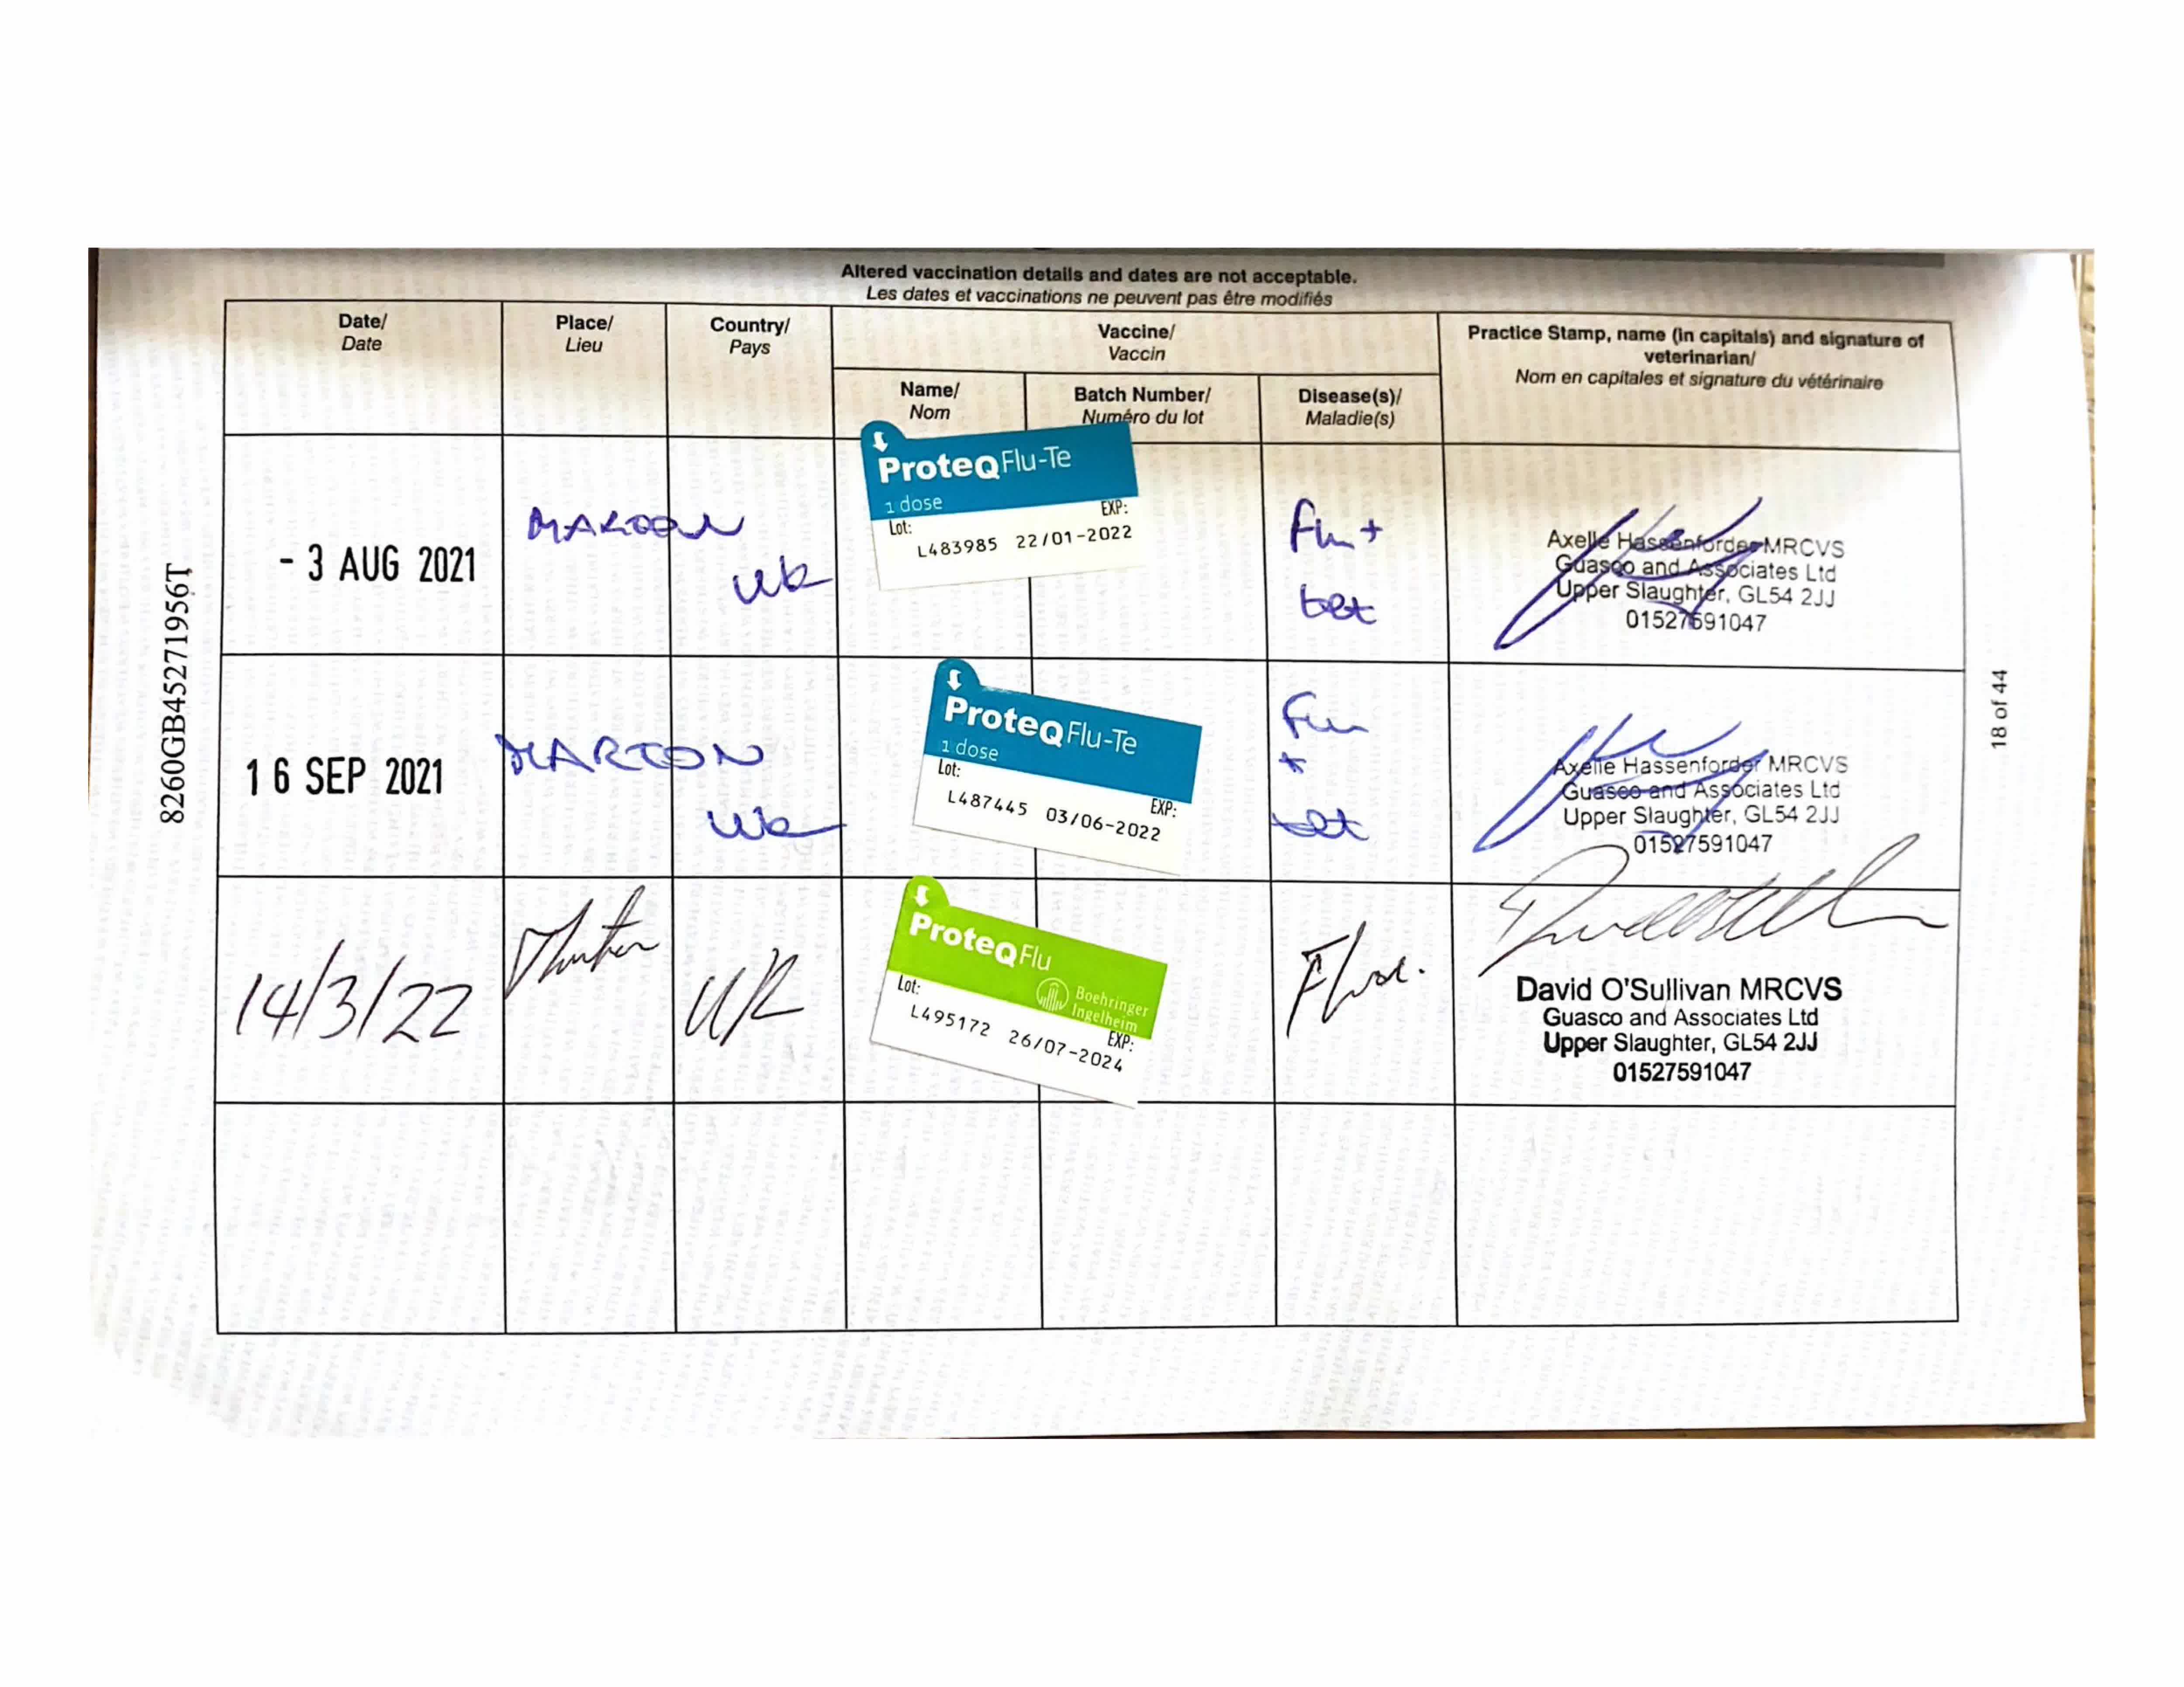 Altered vaccination details and dates are not acceptable.
Les dates et vaccinations ne peuvent pas être modifiés
Date/
Date
Place/
Lieu
Country/
Pays
Vaccine/
Vaccin
Name/
Nom
Batch Number/
Numéro du lot
Disease(s)/
Maladie(s)
Practice Stamp, name (in capitals) and signature of
veterinarian/
Nom en capitales et signature du vétérinaire
- 3 AUG 2021
UK
ProteqFlu-Te
1 dose
Lot:
EXP:
L483985 22/01-2022
Flu +
tet
Axelle Hassenforder MRCVS
Guasco and Associates Ltd
Upper Slaughter, GL54 2JJ
01527591047
16 SEP 2021
MARTON
UK
ProteqFlu-Te
1 dose
Lot:
EXP:
L487445 03/06-2022
Flu
+
tet
Axelle Hassenforder MRCVS
Guasco and Associates Ltd
Upper Slaughter, GL54 2JJ
01527591047
14/3/22
UK
ProteqFlu
Boehringer
Ingelheim
Lot:
EXP:
L495172 26/07-2024
David O'Sullivan MRCVS
Guasco and Associates Ltd
Upper Slaughter, GL54 2JJ
01527591047
8260GB45271956T
18 of 44